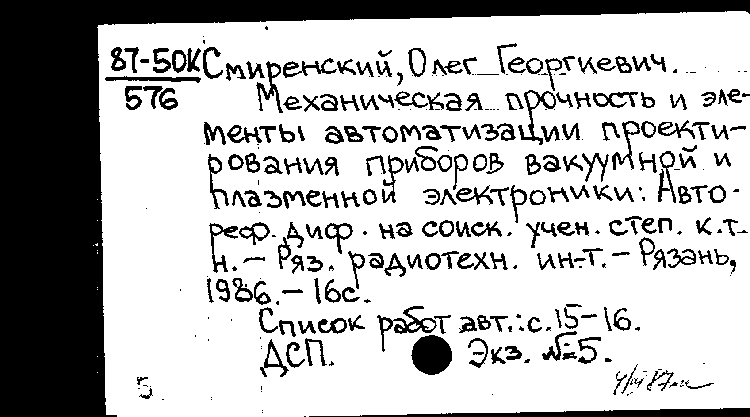 87-50К Смиренский, Олег Георгиевич.
576 Механическая прочность и эле-
менты автоматизации проекти-
рования приборов вакуумной и
плазменной электроники: Авто-
реф. диф. на соиск. учен. степ. к.т.
н. — Ряз. радиотехн. ин-т. — Рязань,
1986. — 16с.
Список работ авт.: с. 15-16.
ДСП. Экз. №5.
5